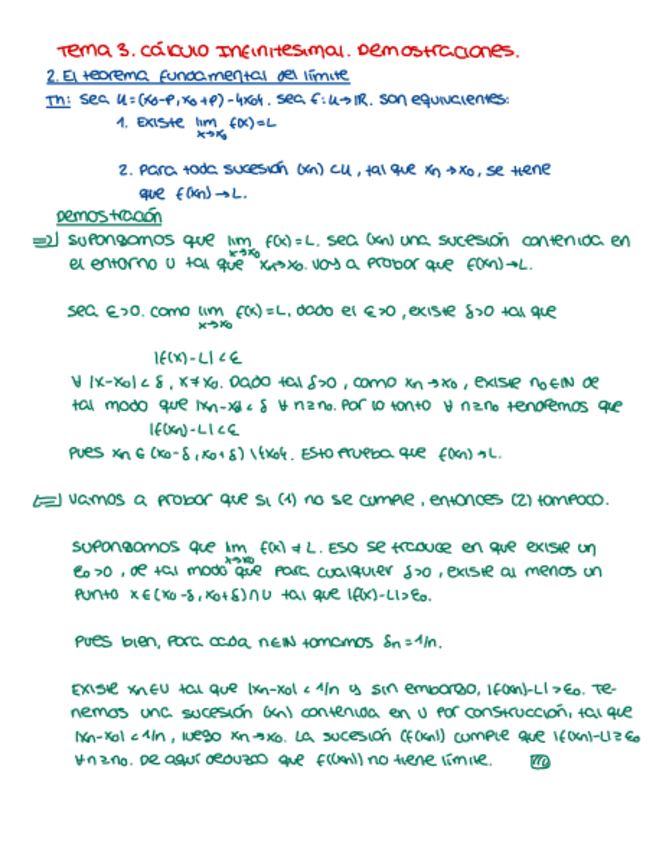 Tema 3. Cálculo Infinitesimal. Demostraciones.
2. El teorema fundamental del límite
Th: Sea U=(x₀-ρ, x₀+ρ)-{x₀}. Sea f: U→ℝ. Son equivalentes:
1. Existe lim f(x)=L
x→x₀
2. Para toda sucesión (xn) ⊂ U, tal que xn → x₀, se tiene
que f(xn)→L.
Demostración
⇒] Supongamos que lim f(x)=L. Sea (xn) una sucesión contenida en
x→x₀
el entorno U tal que xn→x₀. Voy a probar que f(xn)→L.
Sea ε>0. Como lim f(x)=L, dado el ε>0, existe δ>0 tal que
x→x₀
|f(x)-L|<ε
∀ |x-x₀|<δ, x≠x₀. Dado tal δ>0, como xn→x₀, existe n₀∈ℕ de
tal modo que |xn-x₀|<δ ∀ n≥n₀. Por lo tanto ∀ n≥n₀ tendremos que
|f(xn)-L|<ε
pues xn ∈ (x₀-δ, x₀+δ)\{x₀}. Esto prueba que f(xn)→L.
⇐] Vamos a probar que si (1) no se cumple, entonces (2) tampoco.
Supongamos que lim f(x)≠L. Eso se traduce en que existe un
x→x₀
ε₀>0, de tal modo que para cualquier δ>0, existe al menos un
punto x∈(x₀-δ, x₀+δ)∩U tal que |f(x)-L|>ε₀.
Pues bien, para cada n∈ℕ tomamos δn=1/n.
Existe xn∈U tal que |xn-x₀|<1/n y sin embargo, |f(xn)-L|>ε₀. Te-
nemos una sucesión (xn) contenida en U por construcción, tal que
|xn-x₀|<1/n, luego xn→x₀. La sucesión (f(xn)) cumple que |f(xn)-L|≥ε₀
∀n≥n₀. De aquí deduzco que f((xn)) no tiene límite.